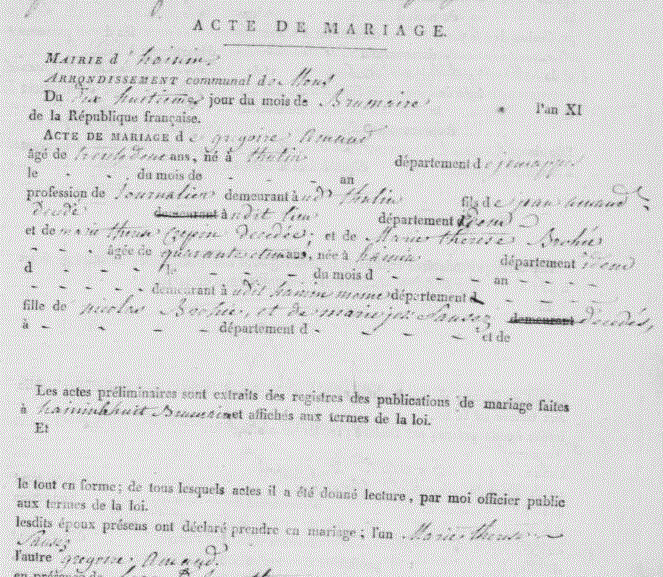 ACTE DE MARIAGE.
MAIRIE d' hainin
ARRONDISSEMENT communal de Mons
Du Dix huitieme jour du mois de Brumaire l'an XI
de la République française.
ACTE DE MARIAGE de gregoire Amand
âgé de trente deux ans, né à thulin département de jemappes
le - - du mois de - - an - - -
profession de Journalier demeurant à udt thulin fils de jean amand
decédé demeurant à udit lieu département d idem
et de marie therese decedée; et de Marie therese Brohée
- - - âgée de quarante et un ans, née à hainin département idem
d - - - - le - - - - du mois d - - - - an - - - -
- - - - - demeurant à udit hainin meme département d
fille de nicolas Brohée, et de marie jos Sausez demeurant decedés,
à - - - - département d - - - - et de
Les actes préliminaires sont extraits des registres des publications de mariage faites
à hainin huit Brumaire et affichés aux termes de la loi.
Et
le tout en forme; de tous lesquels actes il a été donné lecture, par moi officier public
aux termes de la loi.
lesdits époux présens ont déclaré prendre en mariage; l'un Marie therese
Sausez
l'autre gregoire Amand.
en présence de